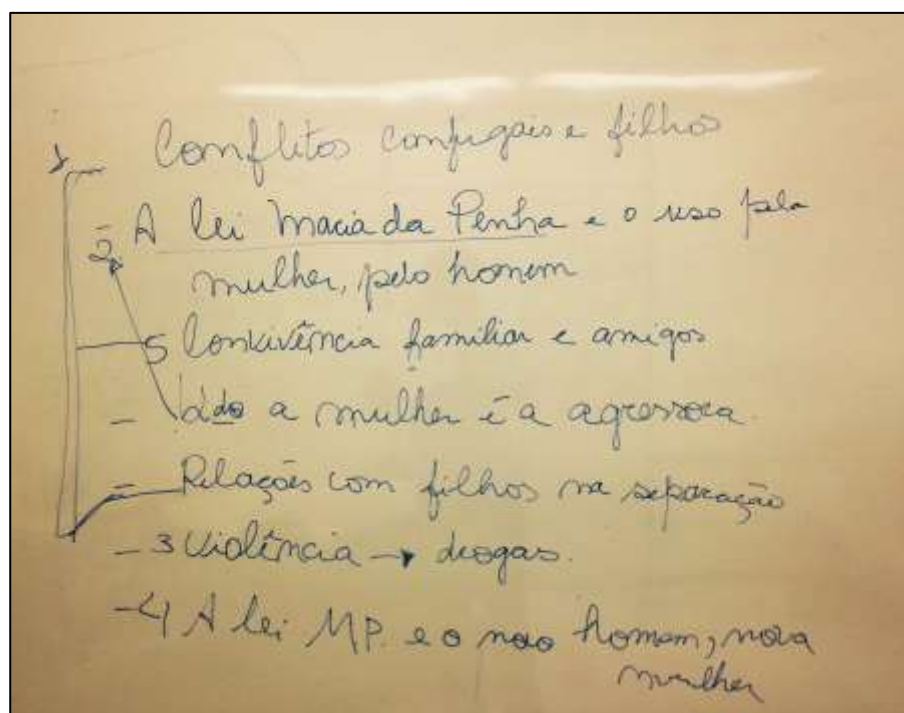 1 Conflitos conjugais e filhos
- 2 A lei Maria da Penha e o uso pela
mulher, pelo homem
5 Convivência familiar e amigos
- a mulher é a agressora.
- Relações com filhos na separação
- 3 Violência → drogas.
- 4 A lei MP. e o novo homem, nova
mulher